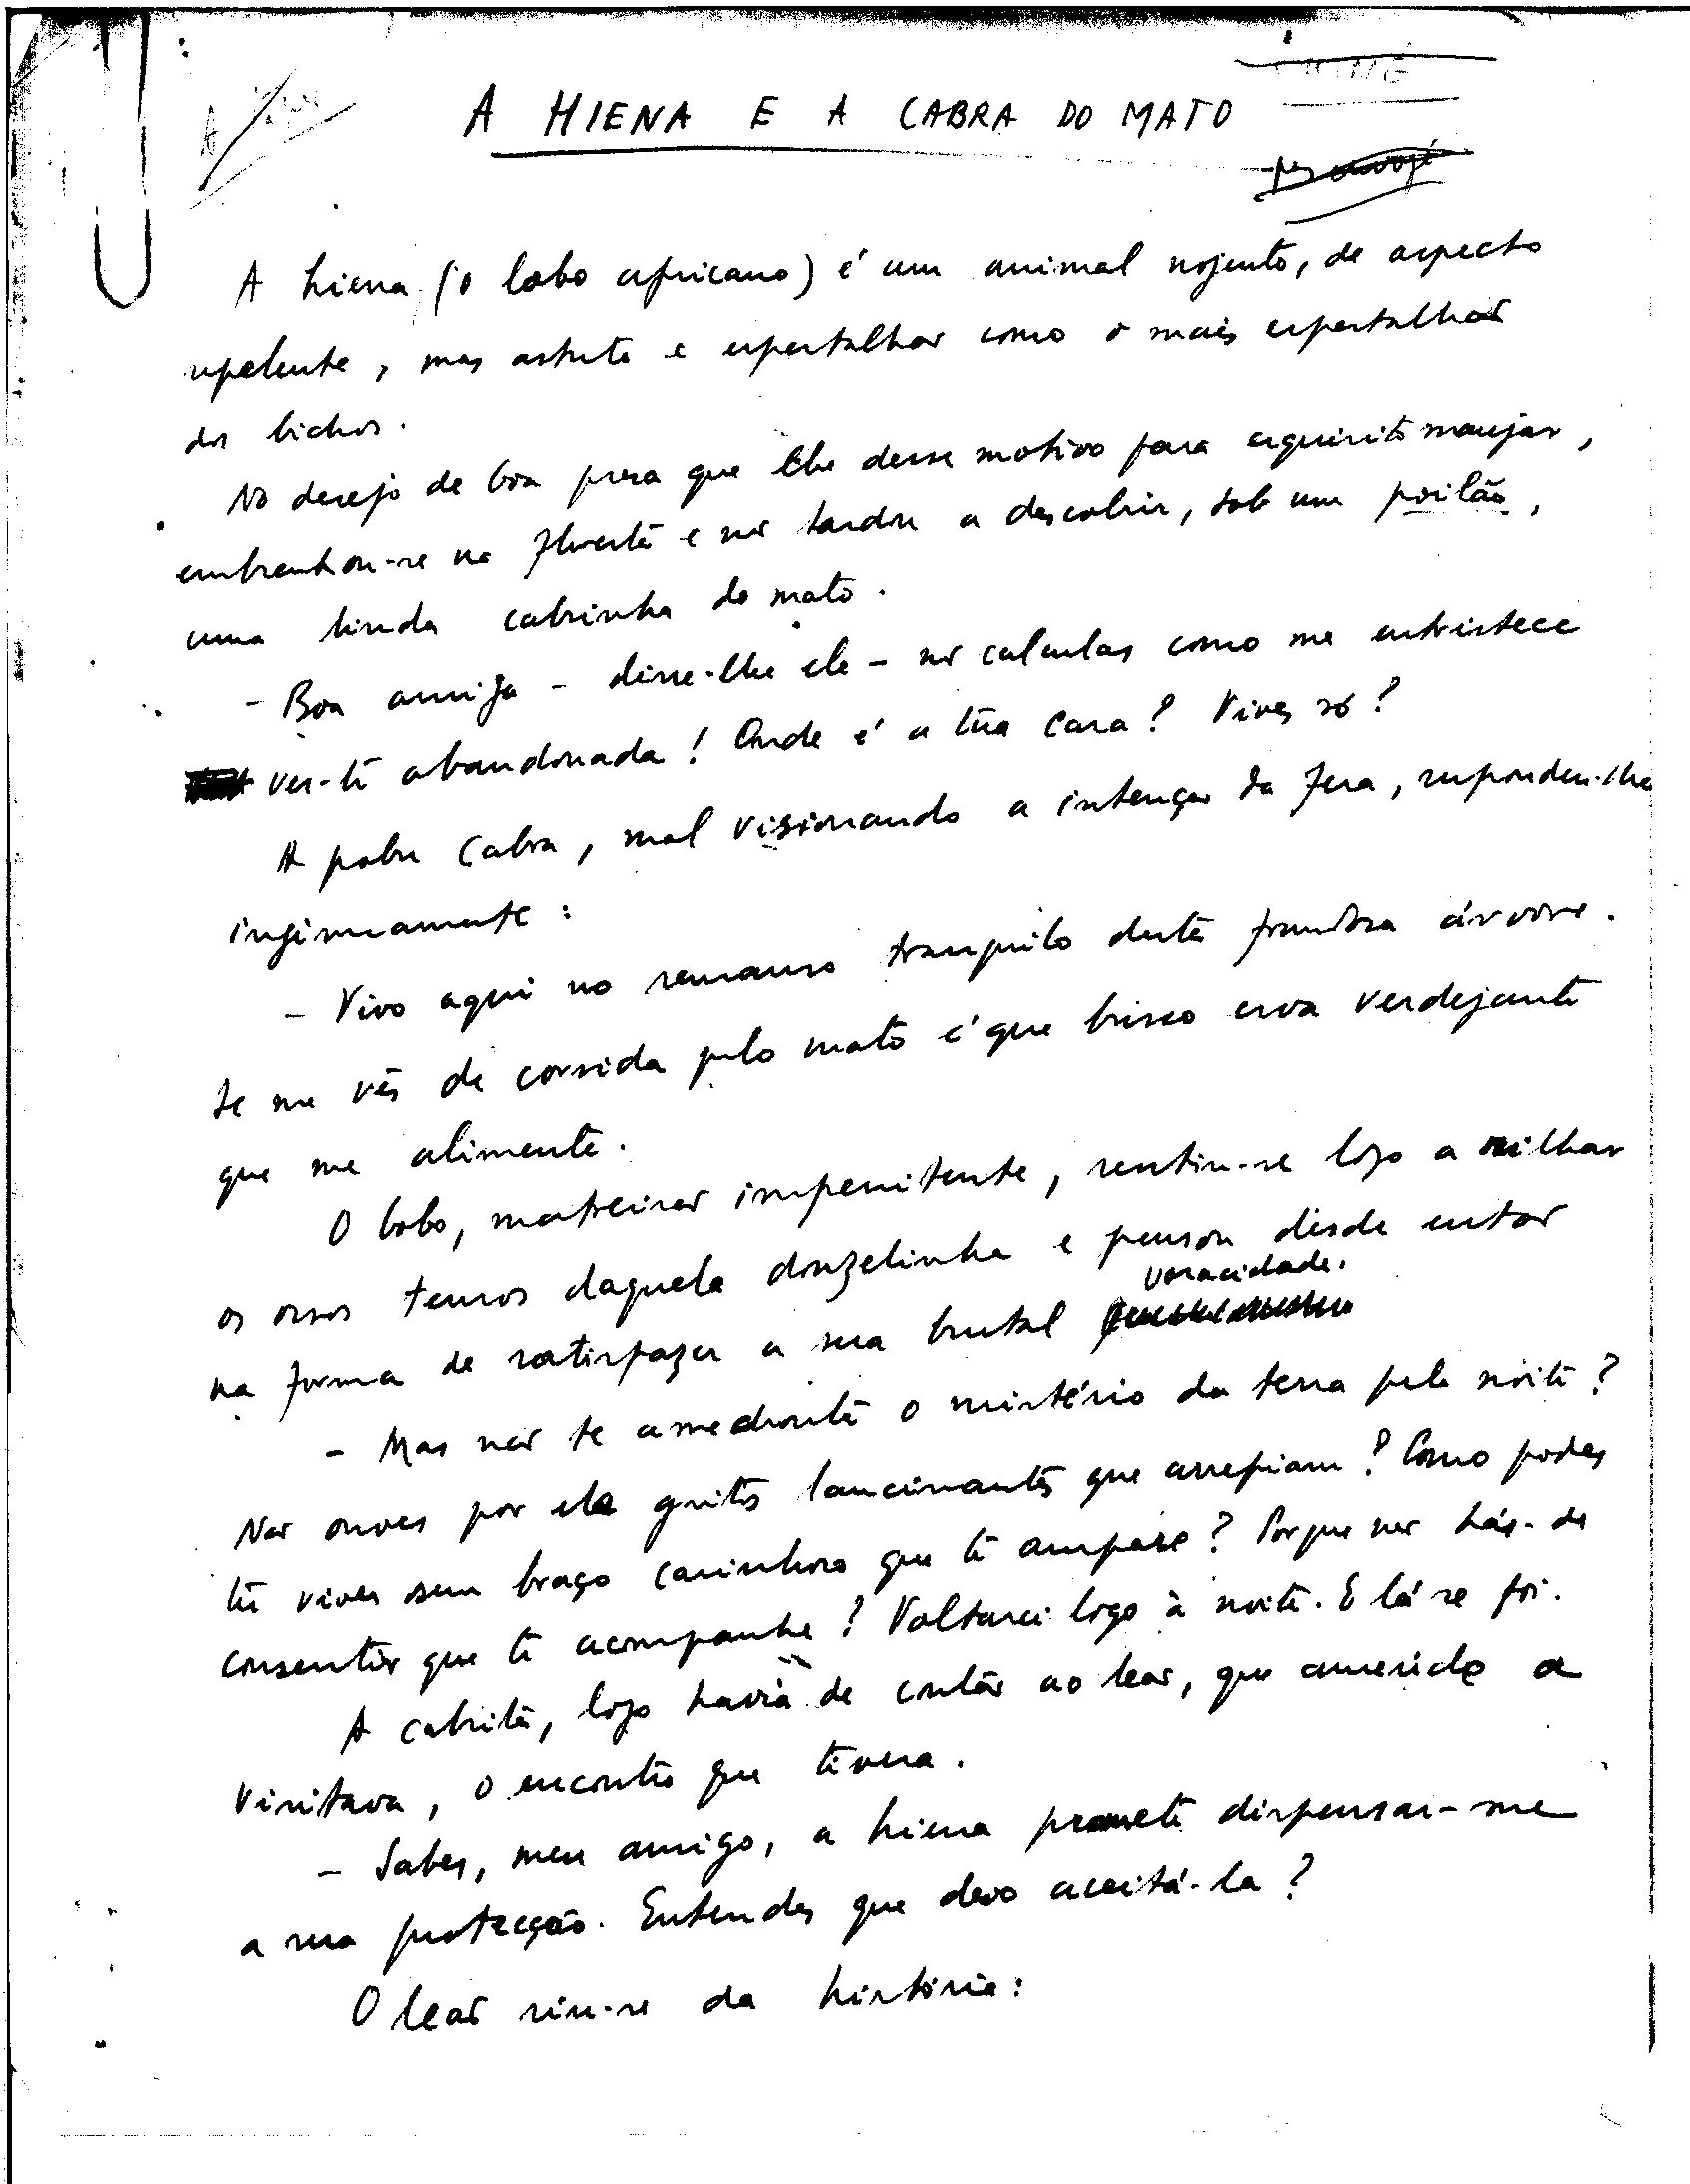 A HIENA E A CABRA DO MATO
A hiena (o lobo africano) é um animal nojento, de aspecto
repelente, mas astuto e espertalhão como o mais espertalhão
dos bichos.
No desejo de boa presa que lhe desse motivo para esquisito manjar,
embrenhou-se na floresta e não tardou a descobrir, sob um poilão,
uma linda cabrinha do mato.
- Boa amiga - disse-lhe ele - não calculas como me entristece
ver-te abandonada! Onde é a tua casa? Vives só?
A pobre cabra, mal visionando a intenção da fera, respondeu-lhe
ingenuamente:
- Vivo aqui no remanso tranquilo desta frondosa árvore.
Se me vês de corrida pelo mato é que busco erva verdejante
que me alimente.
O lobo, matreirão impenitente, sentiu-se logo a trilhar
os ossos tenros daquela donzelinha e pensou desde então
na forma de satisfazer a sua brutal voracidade.
- Mas não te amedronta o mistério da terra pela noite?
Não ouves por ela gritos lancinantes que arrepiam? Como podes
tu viver sem braço carinhoso que te ampare? Porque não hás-de
consentir que te acompanhe? Voltarei logo à noite. E lá se foi.
A cabrita, logo havia de contar ao leão, que amerido a
visitava, o encontro que tivera.
- Sabes, meu amigo, a hiena promete dispensar-me
a sua protecção. Entendes que devo aceitá-la?
O leão riu-se da história: